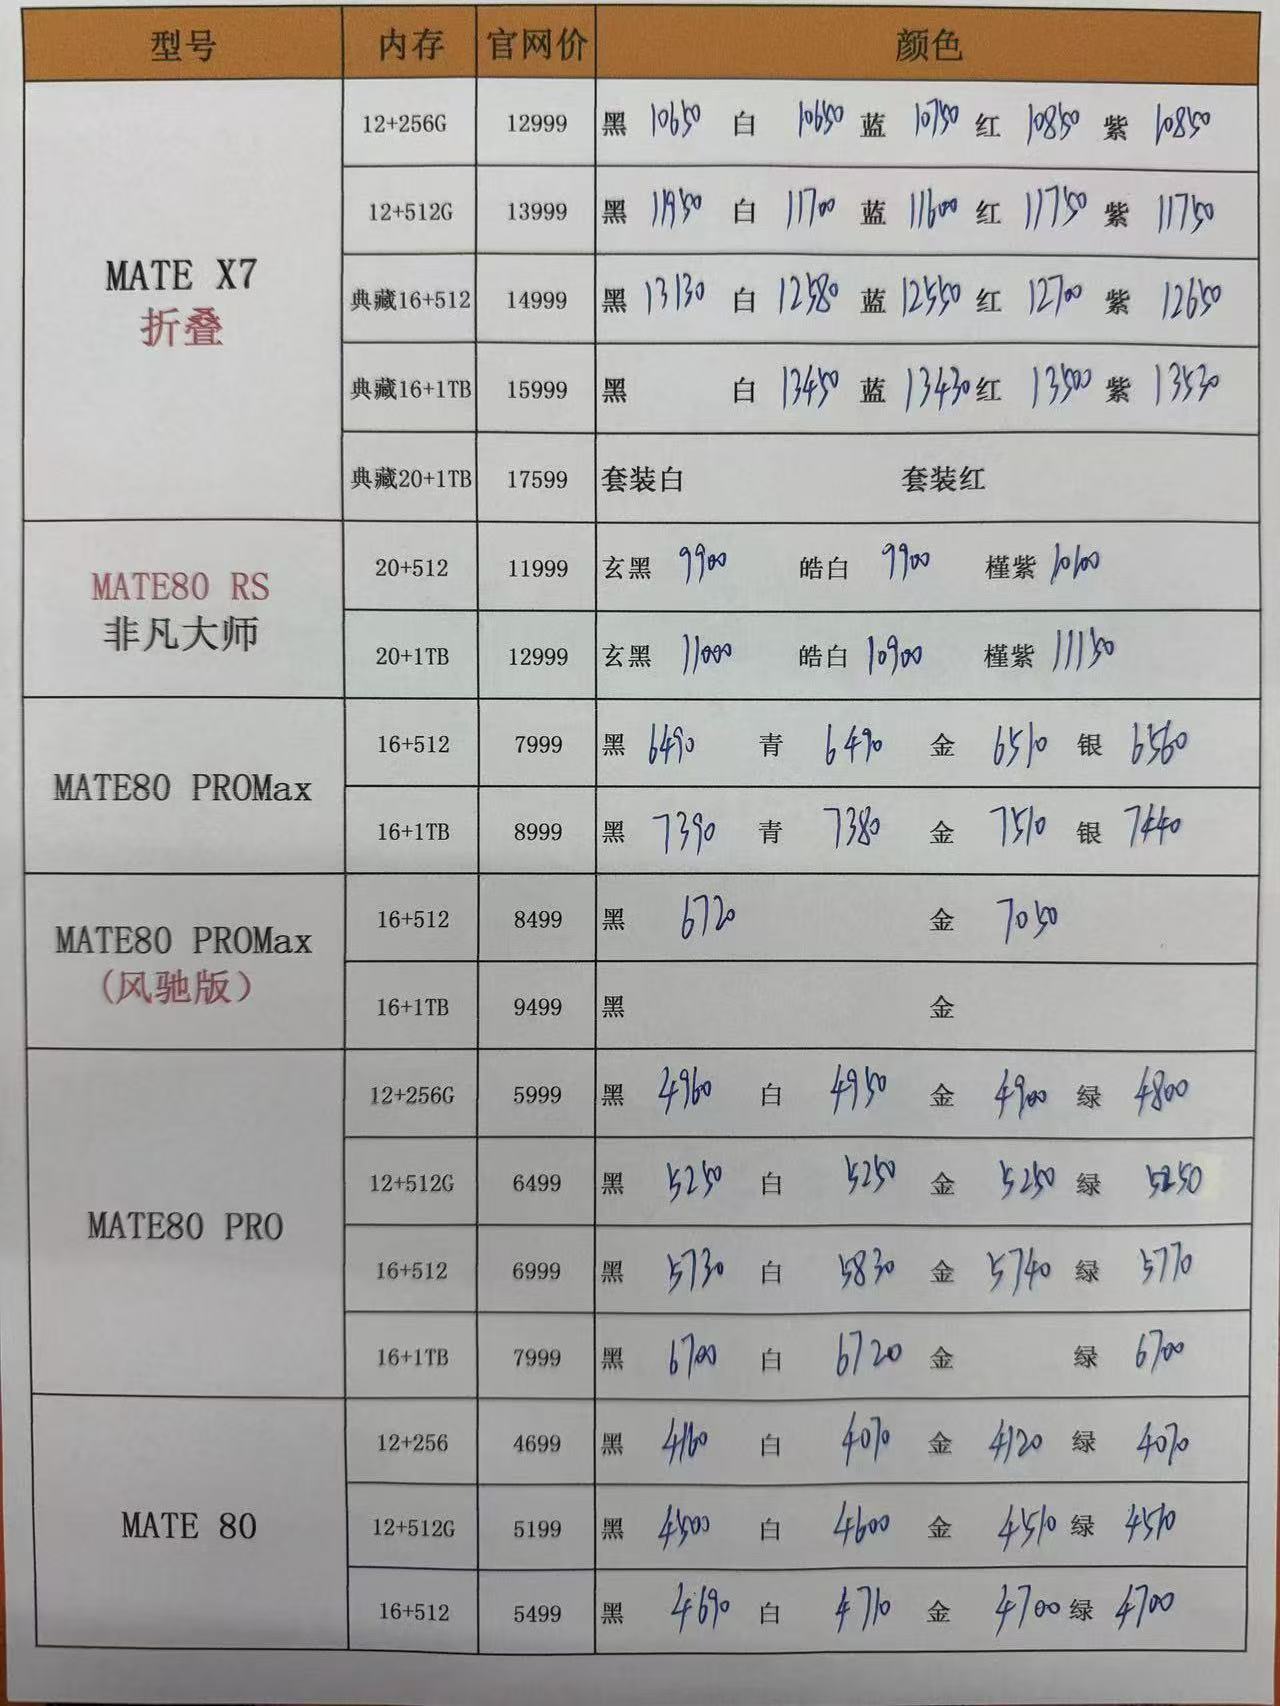 型号 内存 官网价 颜色
12+256G 12999 黑 10650 白 10650 蓝 10750 红 10850 紫 10850
12+512G 13999 黑 11950 白 11700 蓝 11600 红 11750 紫 11750
MATE X7
折叠
典藏16+512 14999 黑 13130 白 12580 蓝 12550 红 12700 紫 12650
典藏16+1TB 15999 黑 白 13450 蓝 13430 红 13500 紫 13530
典藏20+1TB 17599 套装白 套装红
MATE80 RS
非凡大师
20+512 11999 玄黑 9900 皓白 9900 槿紫 10100
20+1TB 12999 玄黑 11000 皓白 10900 槿紫 11150
MATE80 PROMax
16+512 7999 黑 6490 青 6490 金 6510 银 6560
16+1TB 8999 黑 7390 青 7380 金 7510 银 7440
MATE80 PROMax
(风驰版)
16+512 8499 黑 6720 金 7050
16+1TB 9499 黑 金
MATE80 PRO
12+256G 5999 黑 4960 白 4950 金 4900 绿 4800
12+512G 6499 黑 5250 白 5250 金 5250 绿 5250
16+512 6999 黑 5730 白 5830 金 5740 绿 5770
16+1TB 7999 黑 6700 白 6720 金 绿 6700
MATE 80
12+256 4699 黑 4160 白 4070 金 4120 绿 4070
12+512G 5199 黑 4500 白 4600 金 4510 绿 4510
16+512 5499 黑 4690 白 4710 金 4700 绿 4700